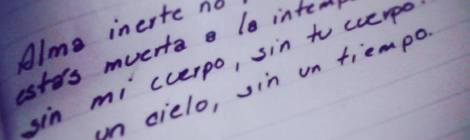 Alma inerte no
estás muerta a la intemp
sin mi cuerpo, sin tu cuerpo.
un cielo, sin un tiempo.